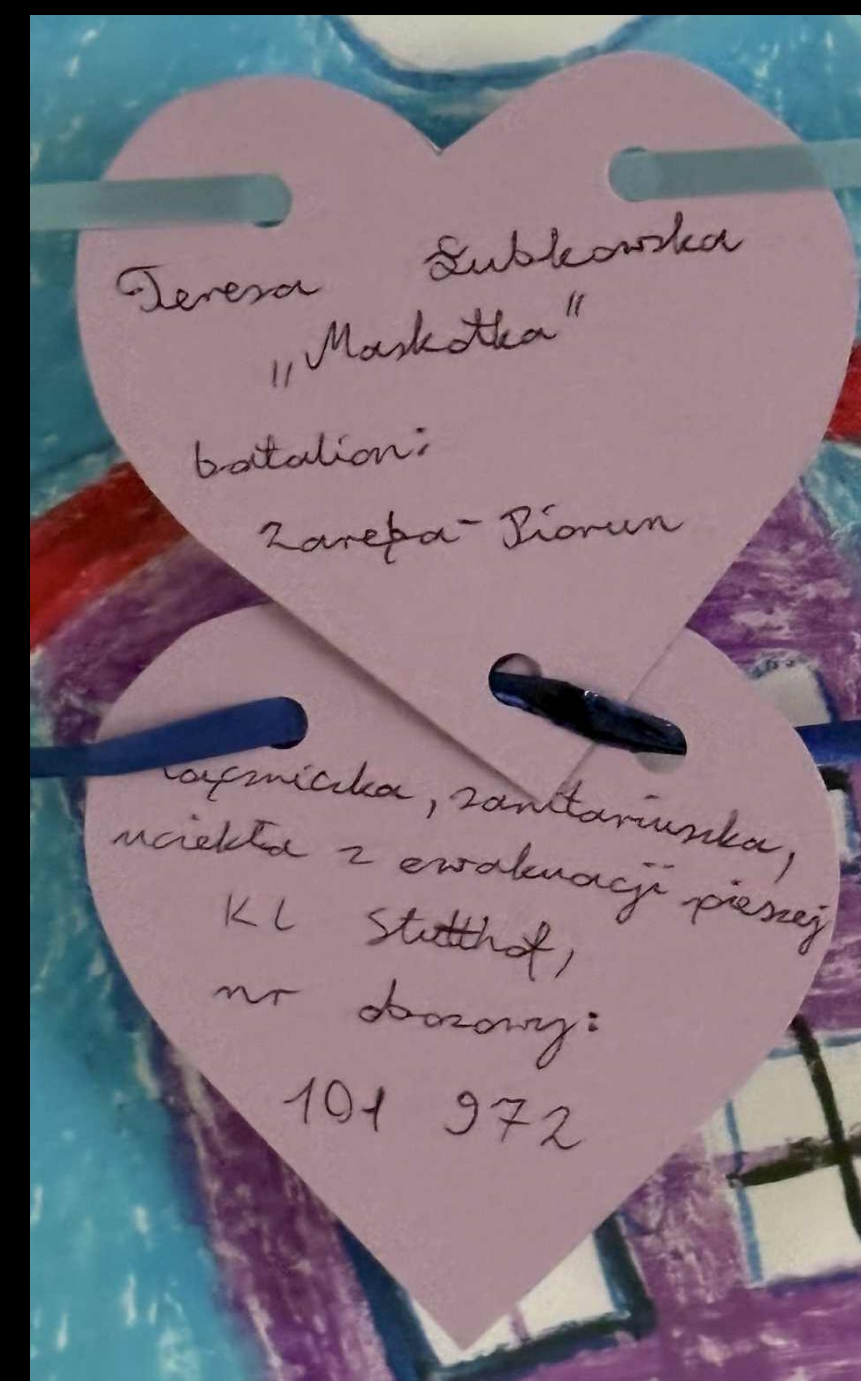 Teresa Łubkowska
„Maskotka"
batalion:
Zaręba-Piorun
łączniczka, sanitariuszka,
uciekła z ewakuacji pieszej
KL Stutthof,
nr obozowy:
101 972